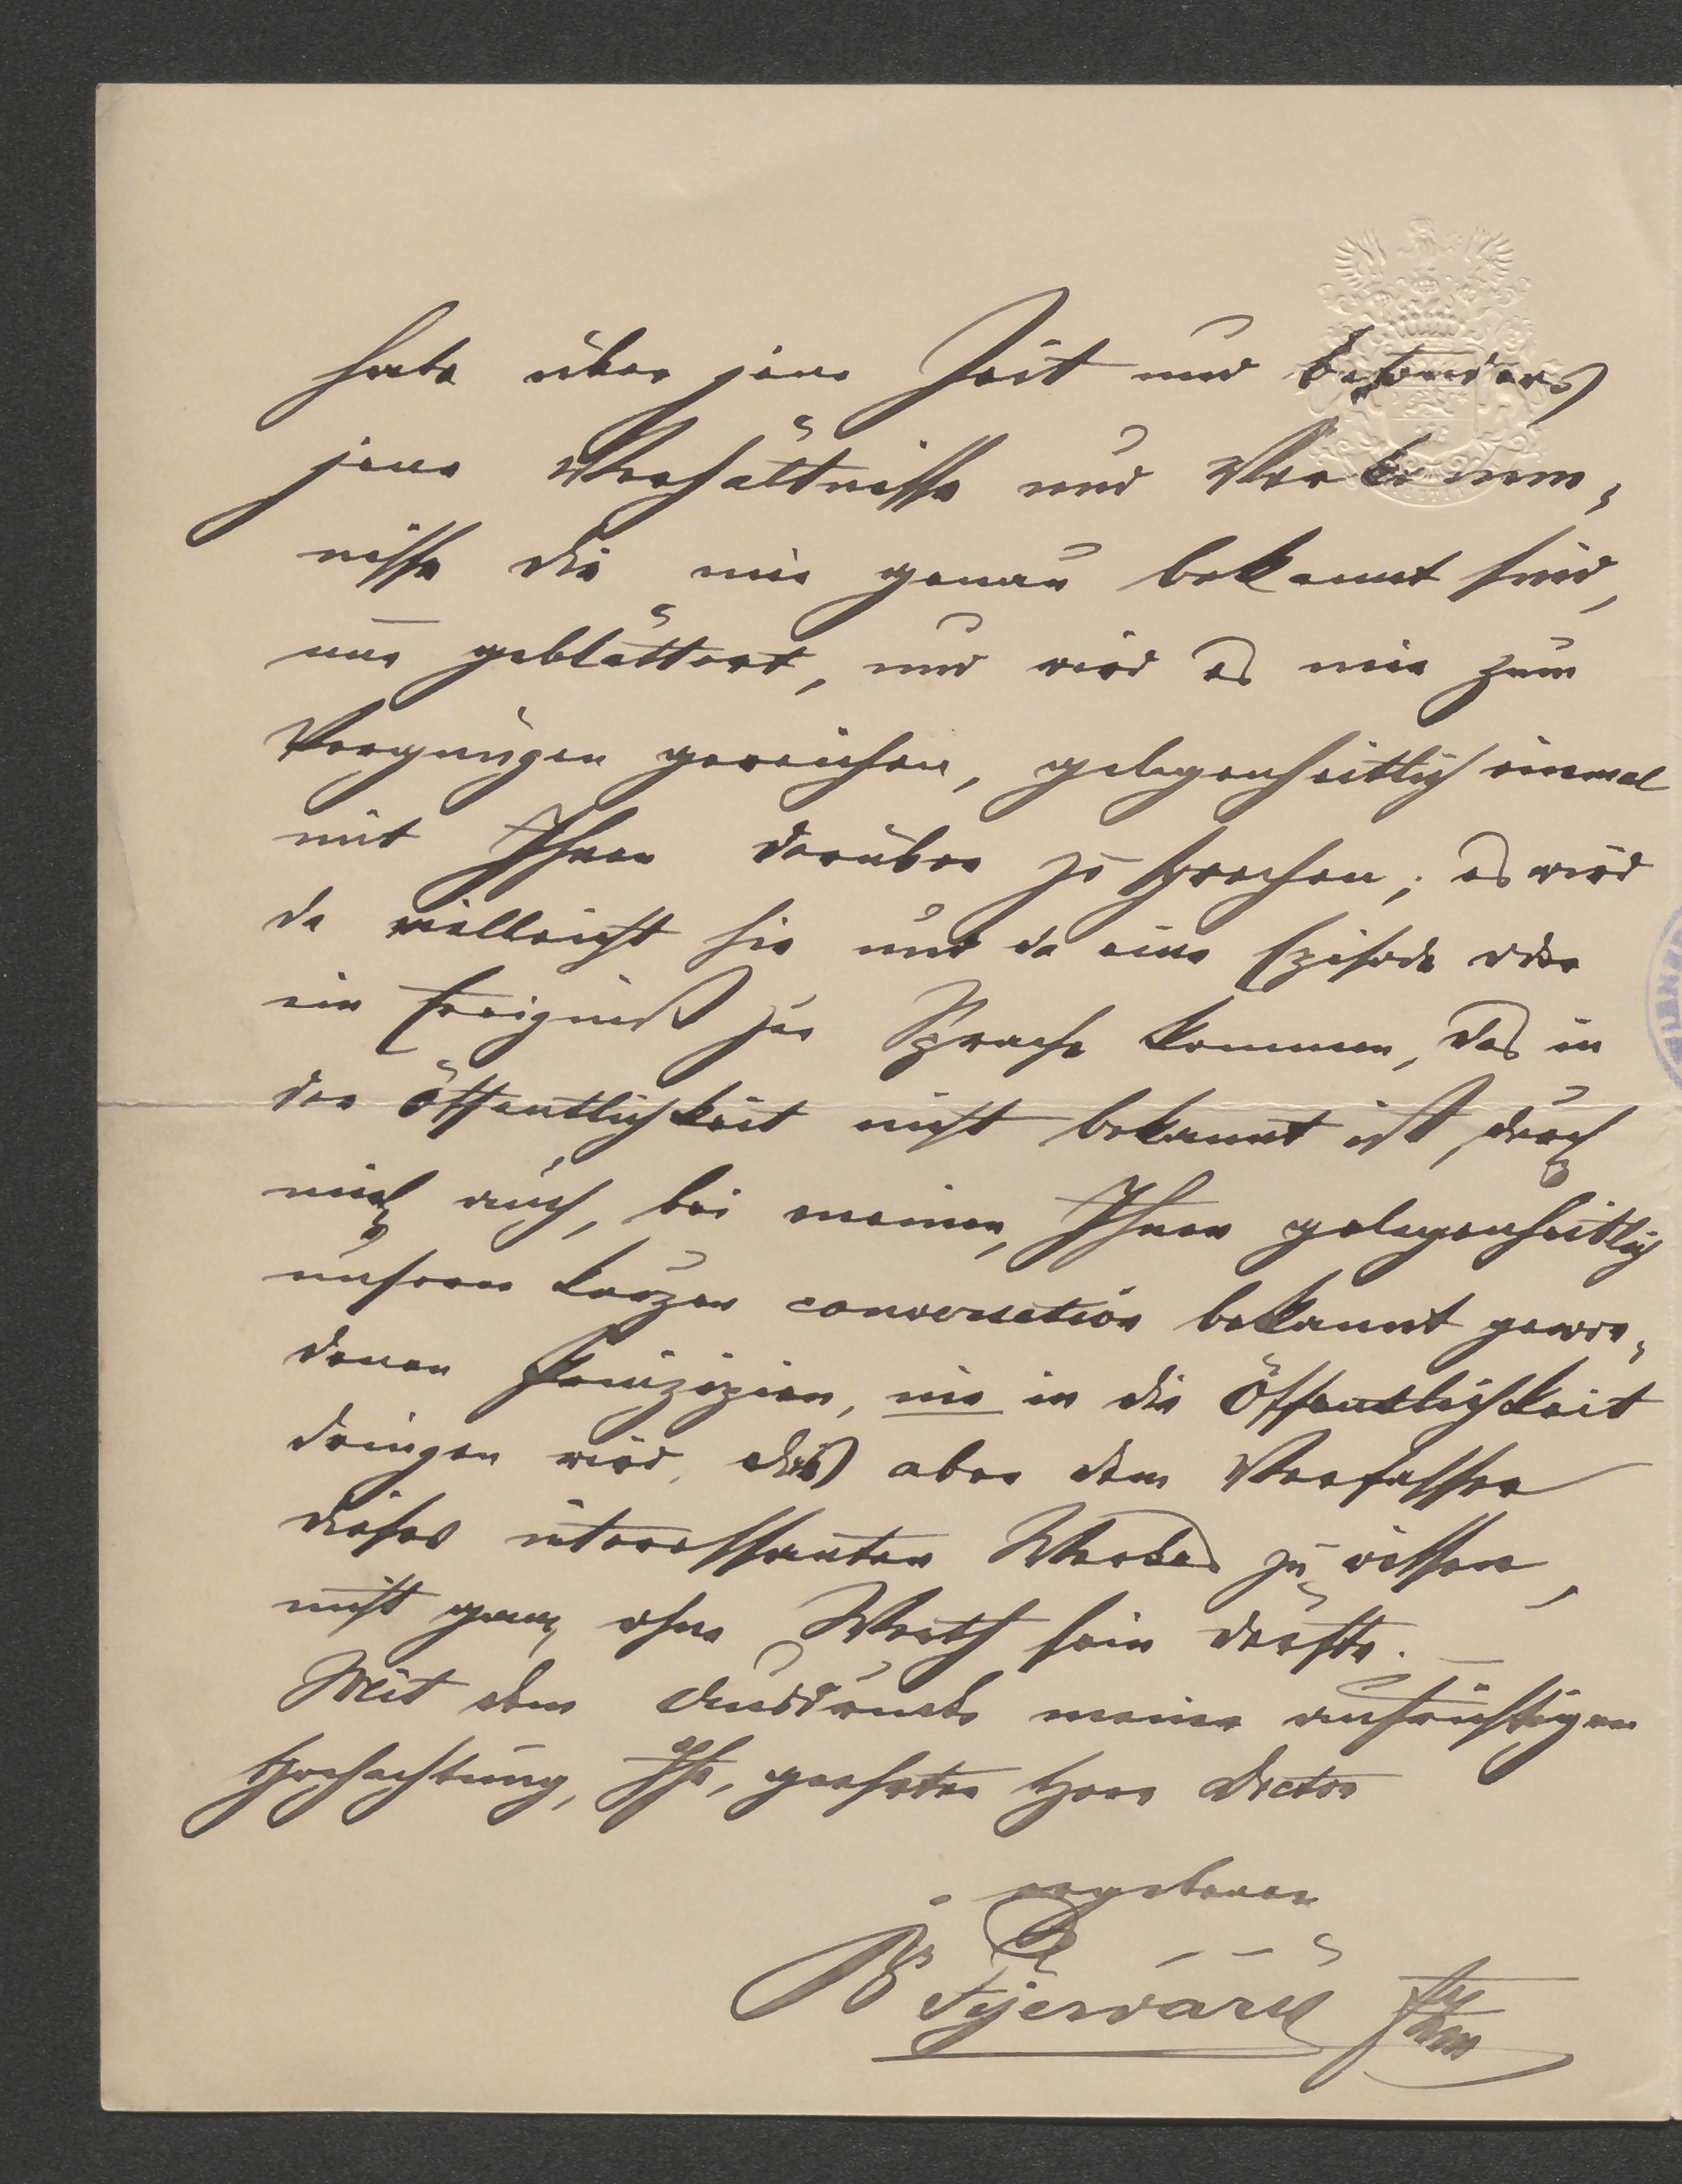 habe über jene Zeit und besonders
jene Verhältnisse und Vorkomm„
nisse die mir genau bekannt sind,
nur geblättert, und wird es mir zum
Vergnügen gereichen, gelegenheitlich einmal
mit Ihnen darüber zu sprechen; es wird
da vielleicht hie und da eine Episode oder
ein Ereigniß zur Sprache kommen, das in
der Öffentlichkeit nicht bekannt ist, durch
mich auch, bei meinen, Ihnen gelegenheitlich
unserer kurzen conversation bekannt gewor„
denen Prinzipien, nie in die Öffentlichkeit
dringen wird, dies aber dem Verfasser
dieses interessanten Werkes zu wissen,
nicht ganz ohne Werth sein dürfte. —
Mit dem Ausdrucke meiner aufrichtigen
Hochachtung, Ihr, geehrter Herr Doctor
ergebener
B Fejérváry